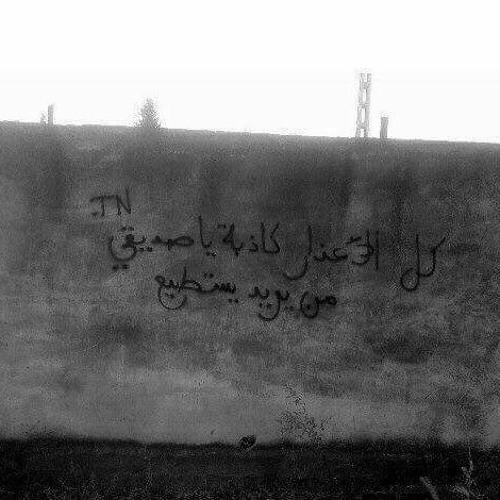 TN.
كل الأعذار كاذبة يا صديقي
من يريد يستطيع